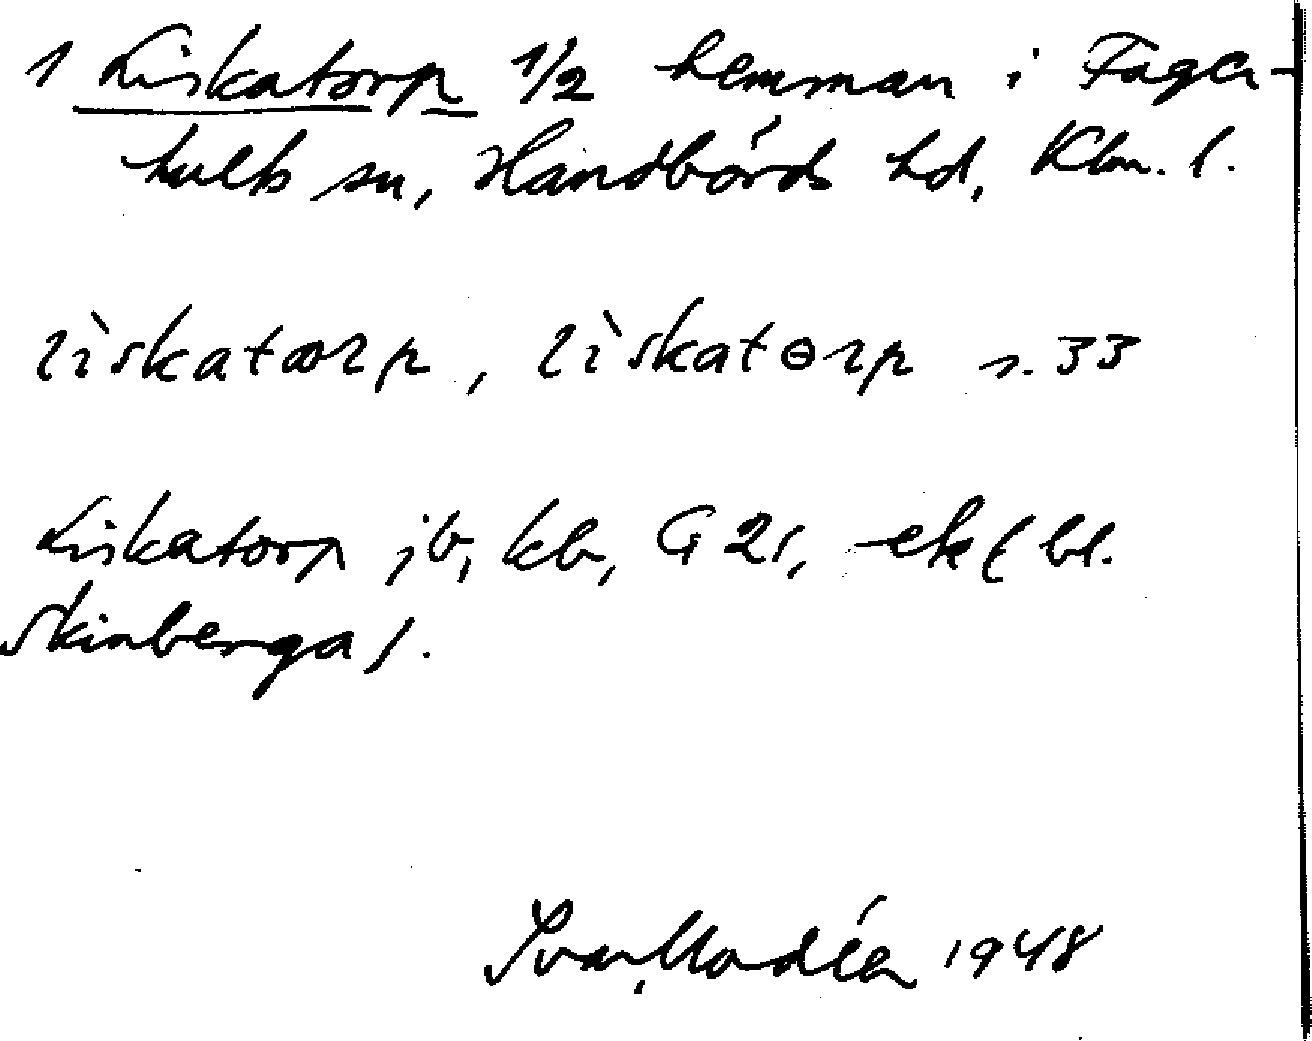 1 Liskatorp 1/2 hemman i Fager-
hults sn, Handbörds hd, Klm. l.
lìskatorp, lìskatɵrp s. 33
Liskatorp jb, kb, G 21, ek (bl.
Skinberga).
Ivar Modéer 1948